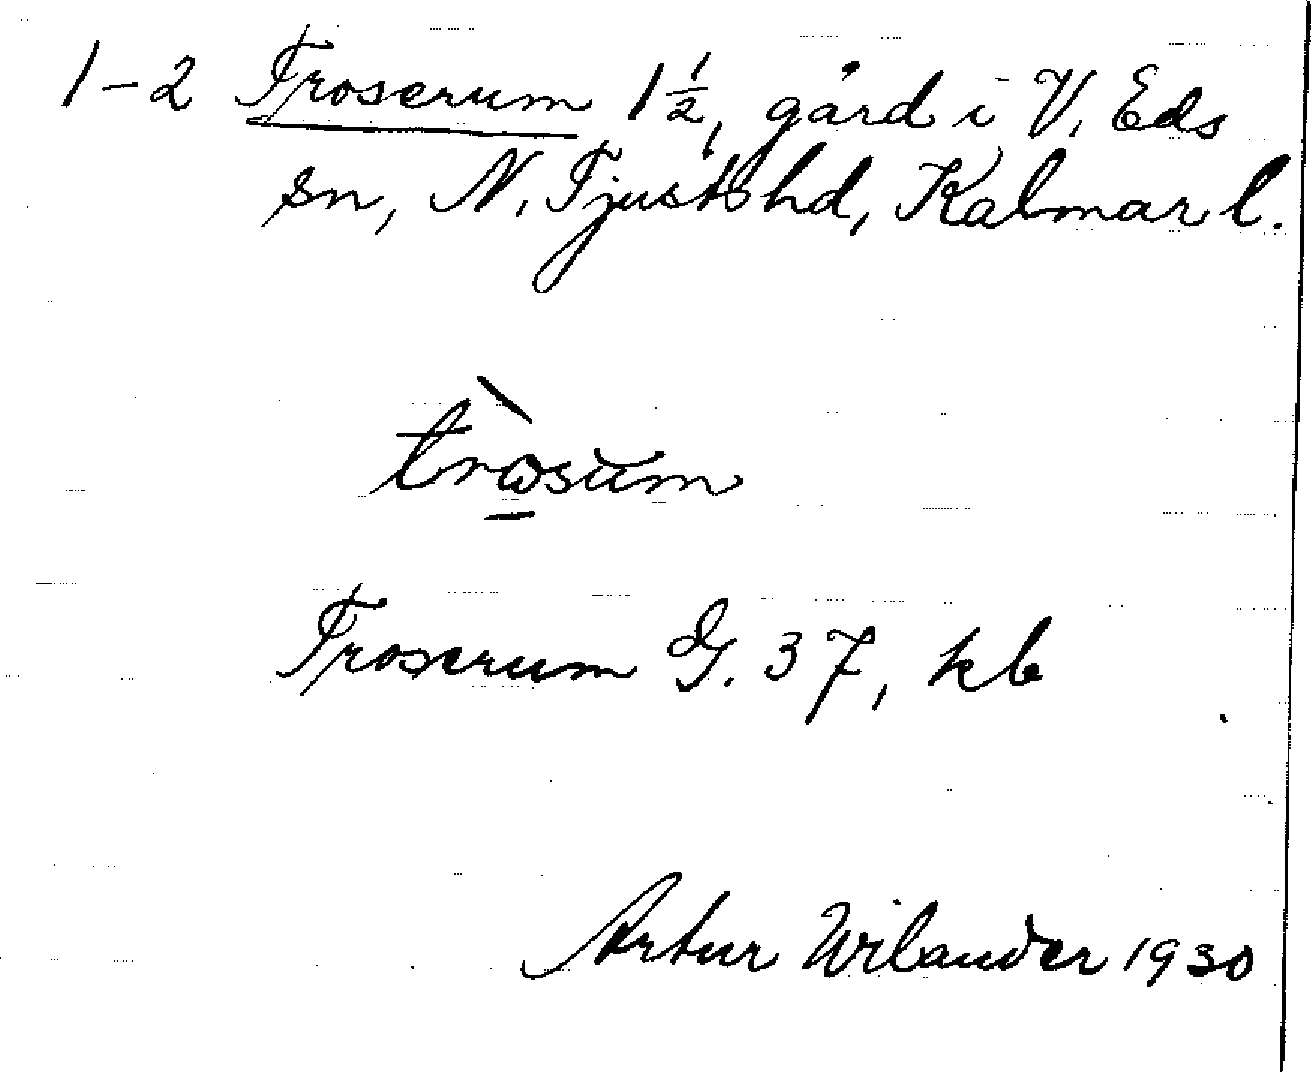 1-2 Troserum 1½, gård i V. Eds
sn, N. Tjusts hd, Kalmar l.
trωsum
Troserum G. 37, kb
Artur Wilander 1930